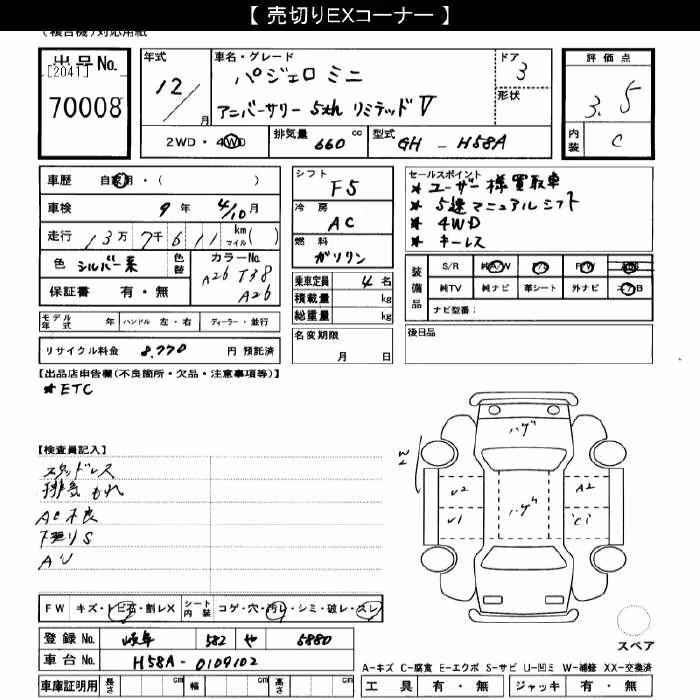 【 売切りEXコーナー 】
(複合機)対応用紙
出品No.
[2041]
70008
年式
12
月
車名・グレード
パジェロ ミニ
アニバーサリー 5th リミテッド V
ドア
3
形状
2WD・4WD
排気量 660 cc
型式 GH - H58A
評価点
3.5
内装 C
車歴 自家用・( )
車検 9年 4/10月
走行 13万 7千 611 km マイル( )
色 シルバー系
色替
カラーNo.
A26 T38
A26
保証書 有・無
モデル年式 年 ハンドル 左・右 ディーラー・並行
リサイクル料金 8,770 円 預託済
シフト
F5
冷房
AC
燃料
ガソリン
乗車定員 4 名
積載量 kg
総重量 kg
名変期限
月 日
セールスポイント
★ ユーザー様買取車
★ 5速マニュアルシフト
★ 4WD
★ キーレス
装備品
S/R 純A/W P/S P/W
純TV 純ナビ 革シート 外ナビ エアB
ナビ型番:
後日品
【出品店申告欄(不良箇所・欠品・注意事項等)】
★ ETC
【検査員記入】
スタッドレス
排気もれ
AC不良
下廻りS
AU
ハゲ
W2
U2
ハゲ
A2
U1
C1
FW キズ・トビ石・割レX シート内装 コゲ・穴・汚レ・シミ・破レ・スレ
登録No. 岐阜 582 や 5880
車台No. H58A-0109102
車庫証明用 長さ cm 幅 cm 高さ cm
スペア
A-キズ C-腐食 E-エクボ S-サビ U-凹ミ W-補修 XX-交換済
工具 有・無 ジャッキ 有・無